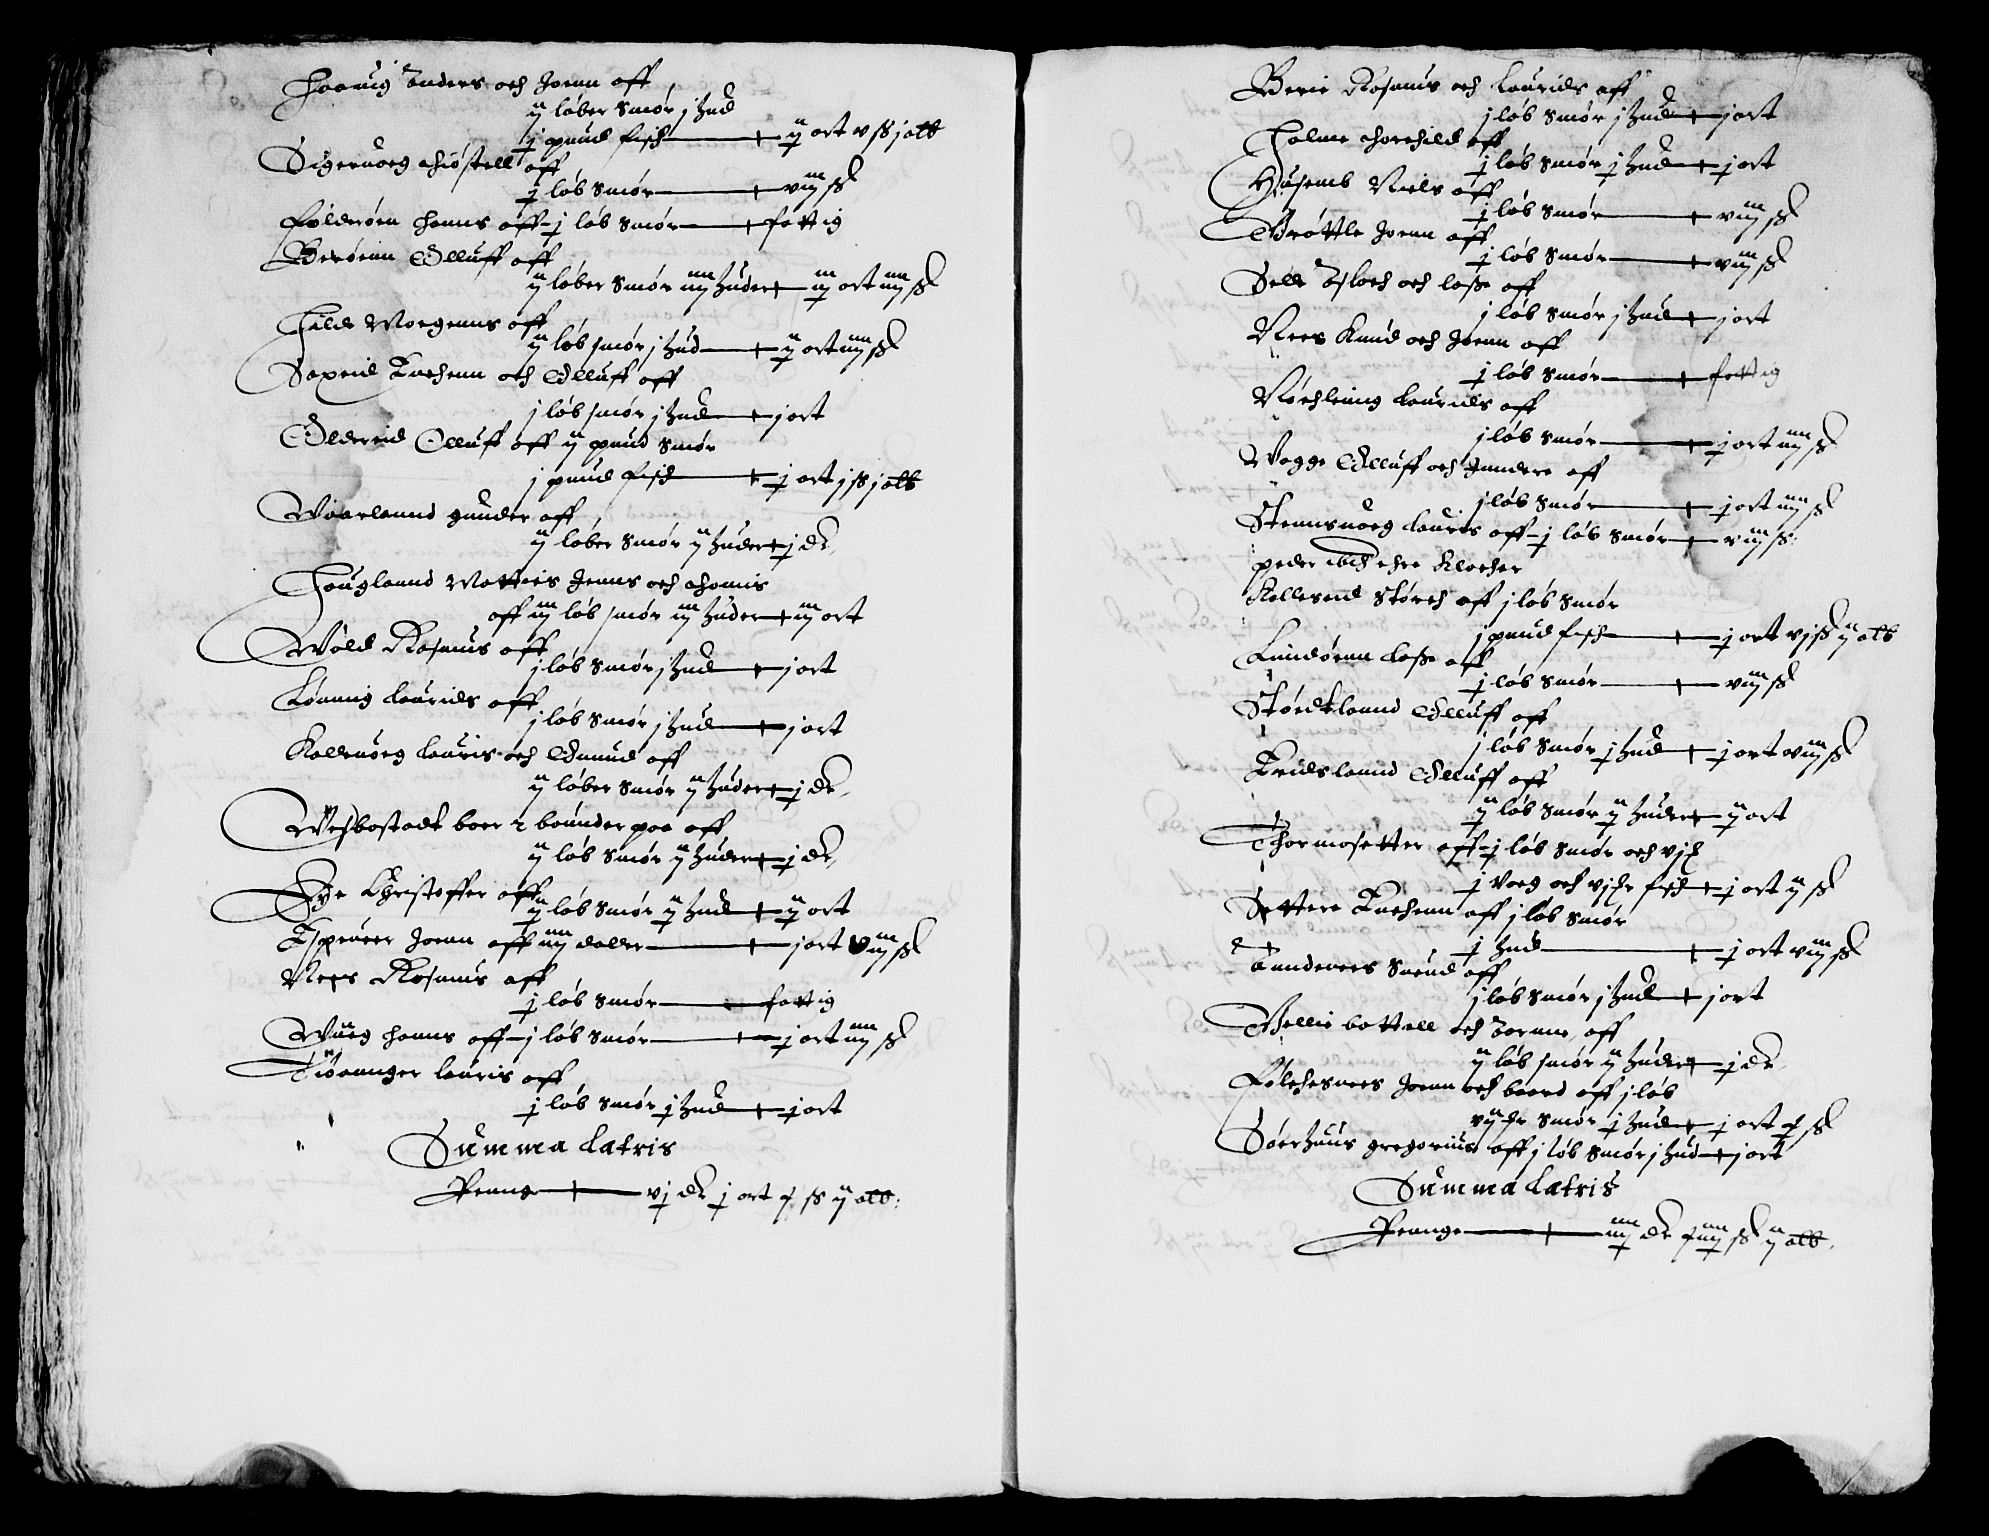 Haauig Anders och Joenn aff
ij løber smør j hud
j pund fisch ij ort v ß j alb
Sigeruoeg Kiøstell aff
j løb smør viij ß
Følderøen Hanns aff j løb smør fattig
Berøenn Olluff aff
ij løber smør iiij huder iij ort iiij ß
Hilde Mogenns aff
ij løb smør j hud ij ort iiij ß
Sexeid Tachenn och Olluff aff
j løb smør j hud j ort
Oldereid Olluff aff ij pund smør
j pund fisch j ort j ß j alb
Waarlannd gunder aff
ij løber smør ij huder j dr
Hauglannd Mattis Jenns och Thomis
aff iij løb smør iij huder iij ort
Wold Rasmus aff
j løb smør j hud j ort
Lønnig Laurids aff
j løb smør j hud j ort
Kalleuoeg Lauris och Omund aff
ij løber smør ij huder j dr
Wesbostadt boer 2 bounder paa aff
ij løb smør ij huder j dr
Øye Christoffer aff
ij løb smør ij hud ij ort
Espeuer Joenn aff iiij daller j ort viij ß
Nees Rasmus aff
j løb smør fattig
Waag Hanns aff j løb smør j ort iiij ß
Tiøeanger Lauris aff
j løb smør j hud j ort
Summa Latris
Pennge vj dr j ort ß ij alb:
Berie Rasmus och Laurids aff
j løb smør j hud j ort
Holme Thorchild aff
j løb smør j hud j ort
Husemb Niels aff
j løb smør viij ß
Brøttle Joenn aff
j løb smør viij ß
Selle Asloch och Lasse aff
j løb smør j hud j ort
Nees Knud och Joenn aff
j løb smør fattig
Røchleing Laurids aff
j løb smør j ort iiij ß
Wogge Olluff och aff
j løb smør j ort iiij ß
Stennsuoeg Lauris aff j løb smør viij ß
peder ibid ehre Klocher
Kallesund Størch aff j løb smør
j pund fisch j ort vj ß ij alb
Lindøenn Lasse aff
j løb smør viij ß
Støedtlannd Olluff aff
j løb smør j hud j ort viij ß
Treidslannd Olluff aff
ij løb smør ij huder ij ort
Thormosetter aff j løb smør och
j voeg och fisch j ort ij ß
Settere Tachenn aff j løb smør
j hud j ort viij ß
Tanderees Suend aff
j løb smør j hud j ort
Bellie bottell och aff
ij løb smør ij huder j dr
Følchesnees Joenn och baard aff j løb
smør j hud j ort ß
Søerhuus gregorius aff j løb smør j hud j ort
Summa Latris
Pennge iiij dr iiij ß ij alb.